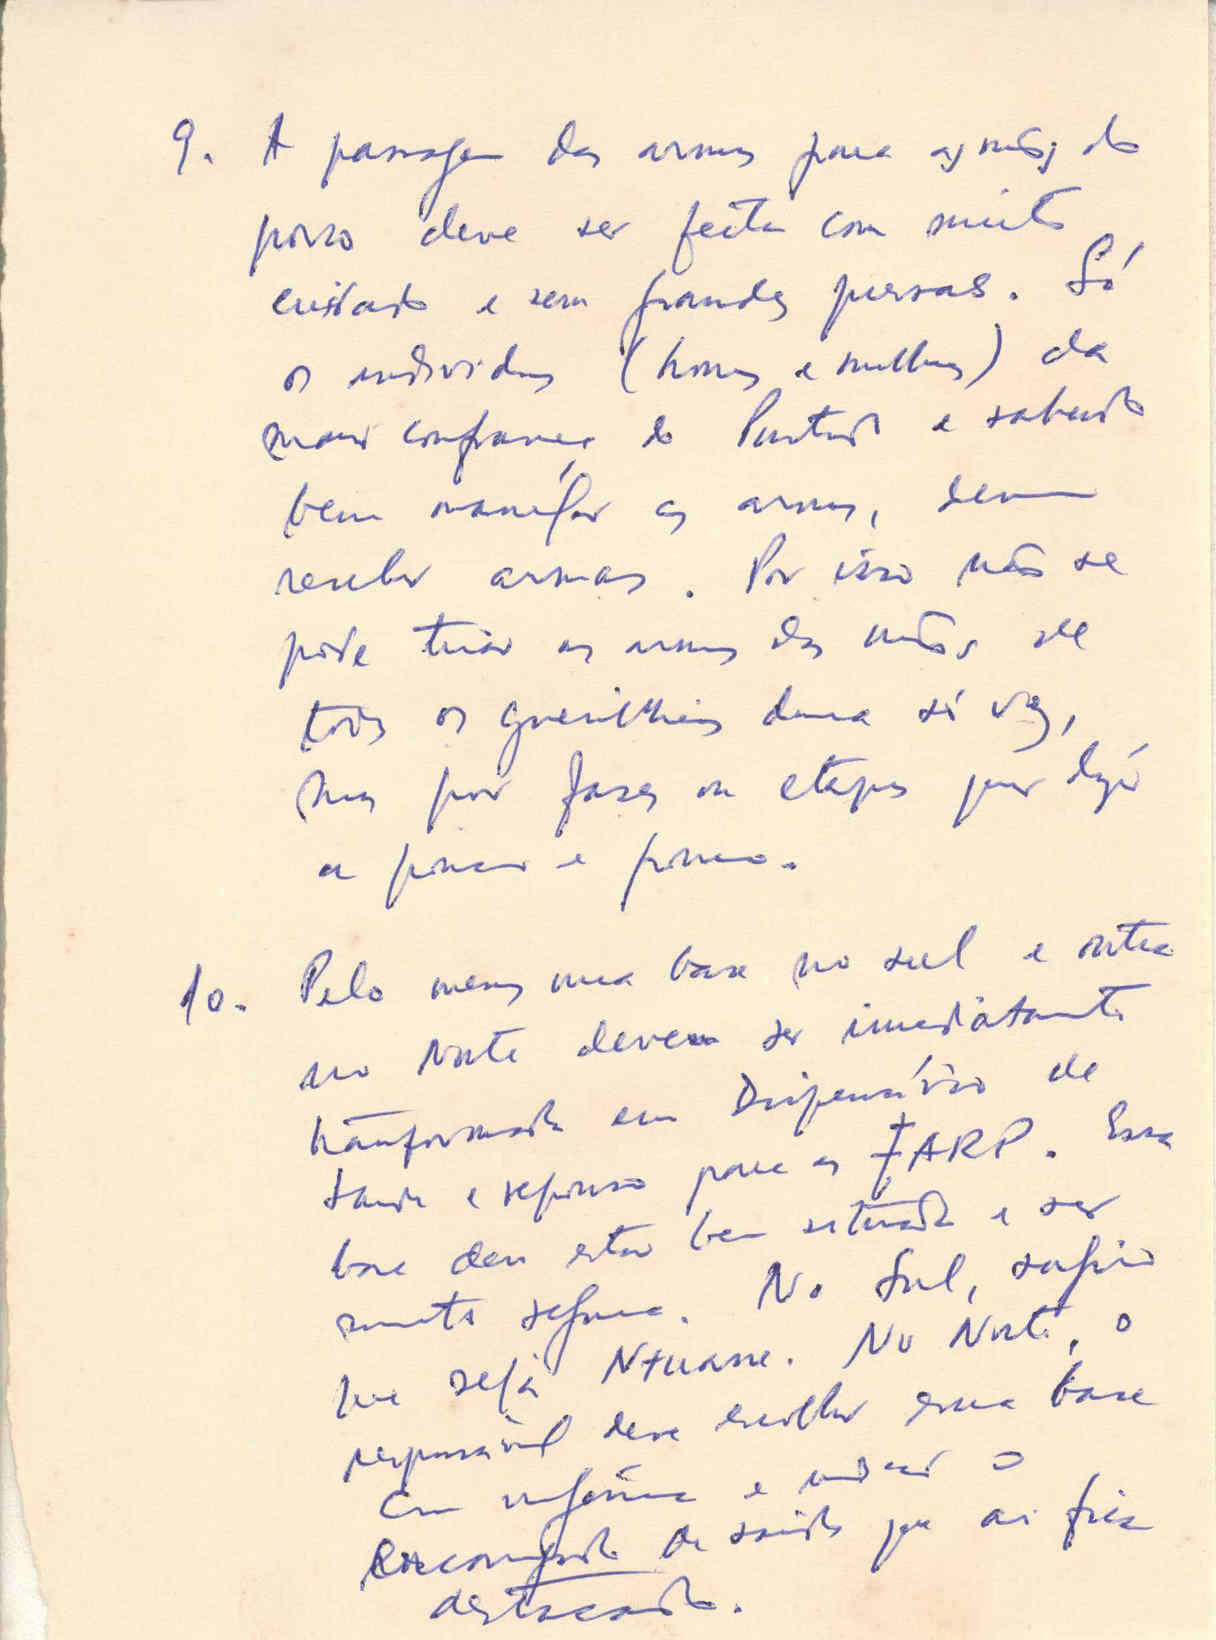 9. A passagem das armas para as mãos do
povo deve ser feita com muito
cuidado e sem grandes pressas. Só
os individuos (homens e mulheres) da
maior confiança do Partido e sabendo
bem manejar as armas, devem
receber armas. Por isso não se
pode tirar as armas das mãos de
todos os guerrilheiros duma só vez,
mas por fases ou etapas quer dizer
a pouco e pouco.
10. Pelo menos uma base no sul e outra
no Norte devem ser imediatamente
transformada em Dispensário de
saude e repouso para as FARP. Essa
base deve estar bem situada e ser
muito segura. No Sul, sugiro
que seja Ntuane. No Norte, o
responsável deve escolher essa base
e indicar o
encarregado de saúde que aí fica
destacado.